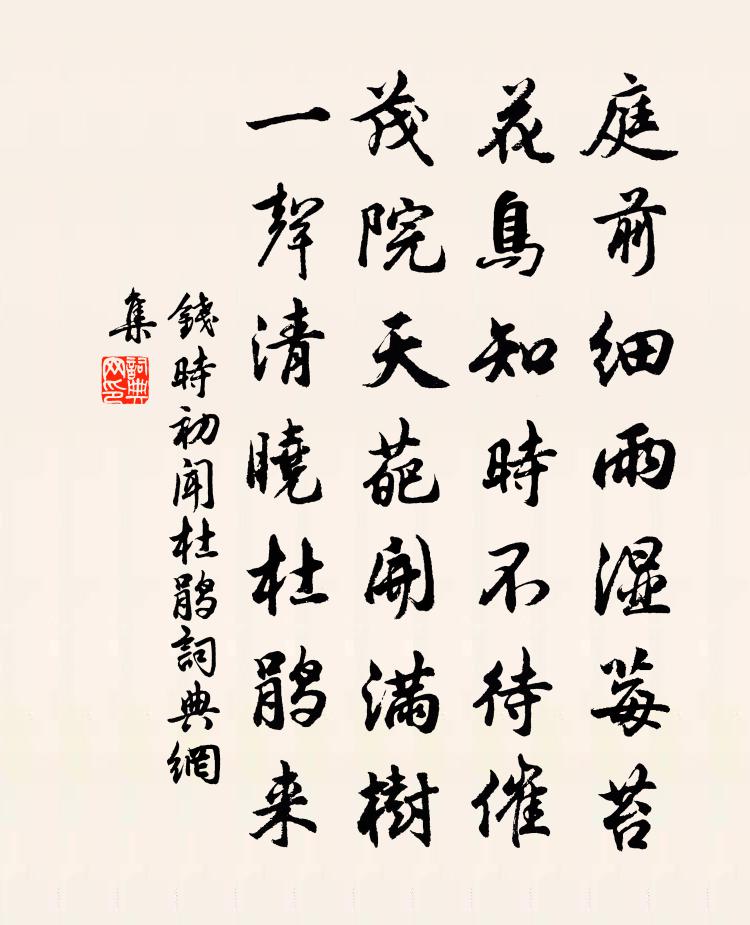 庭前細雨湿莓苔
花鳥知時不待催
茂院天葩開滿樹
一聲清曉杜鵑来
錢時初聞杜鵑詞典網
集
詞典
网印